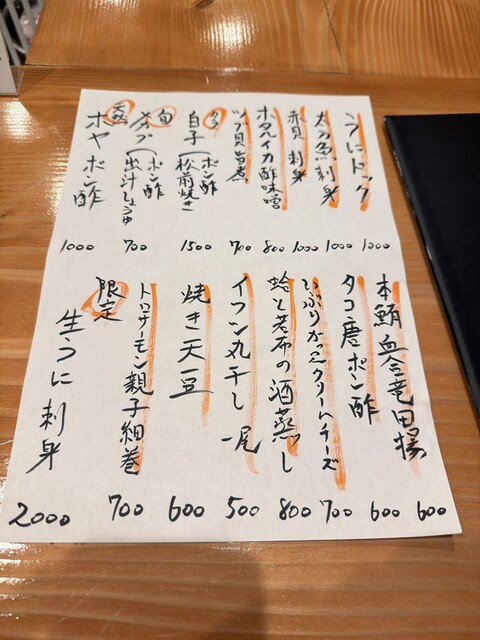 うにドック 1000
太刀魚刺身 1000
赤貝刺身 1000
ホタルイカ酢味噌 800
ツブ貝旨煮 700
白子(ポン酢
松前焼き 1500
旬
メカブ(ポン酢
出汁しょうゆ 700
天然
ホヤポン酢 1000
本鮪血合竜田揚 600
タコ唐ポン酢 600
いぶりがっこクリームチーズ 700
蛤と若布の酒蒸し 800
イワシ丸干し一尾 500
焼き天豆 600
トロサーモン親子細巻 700
限定
生うに刺身 2000